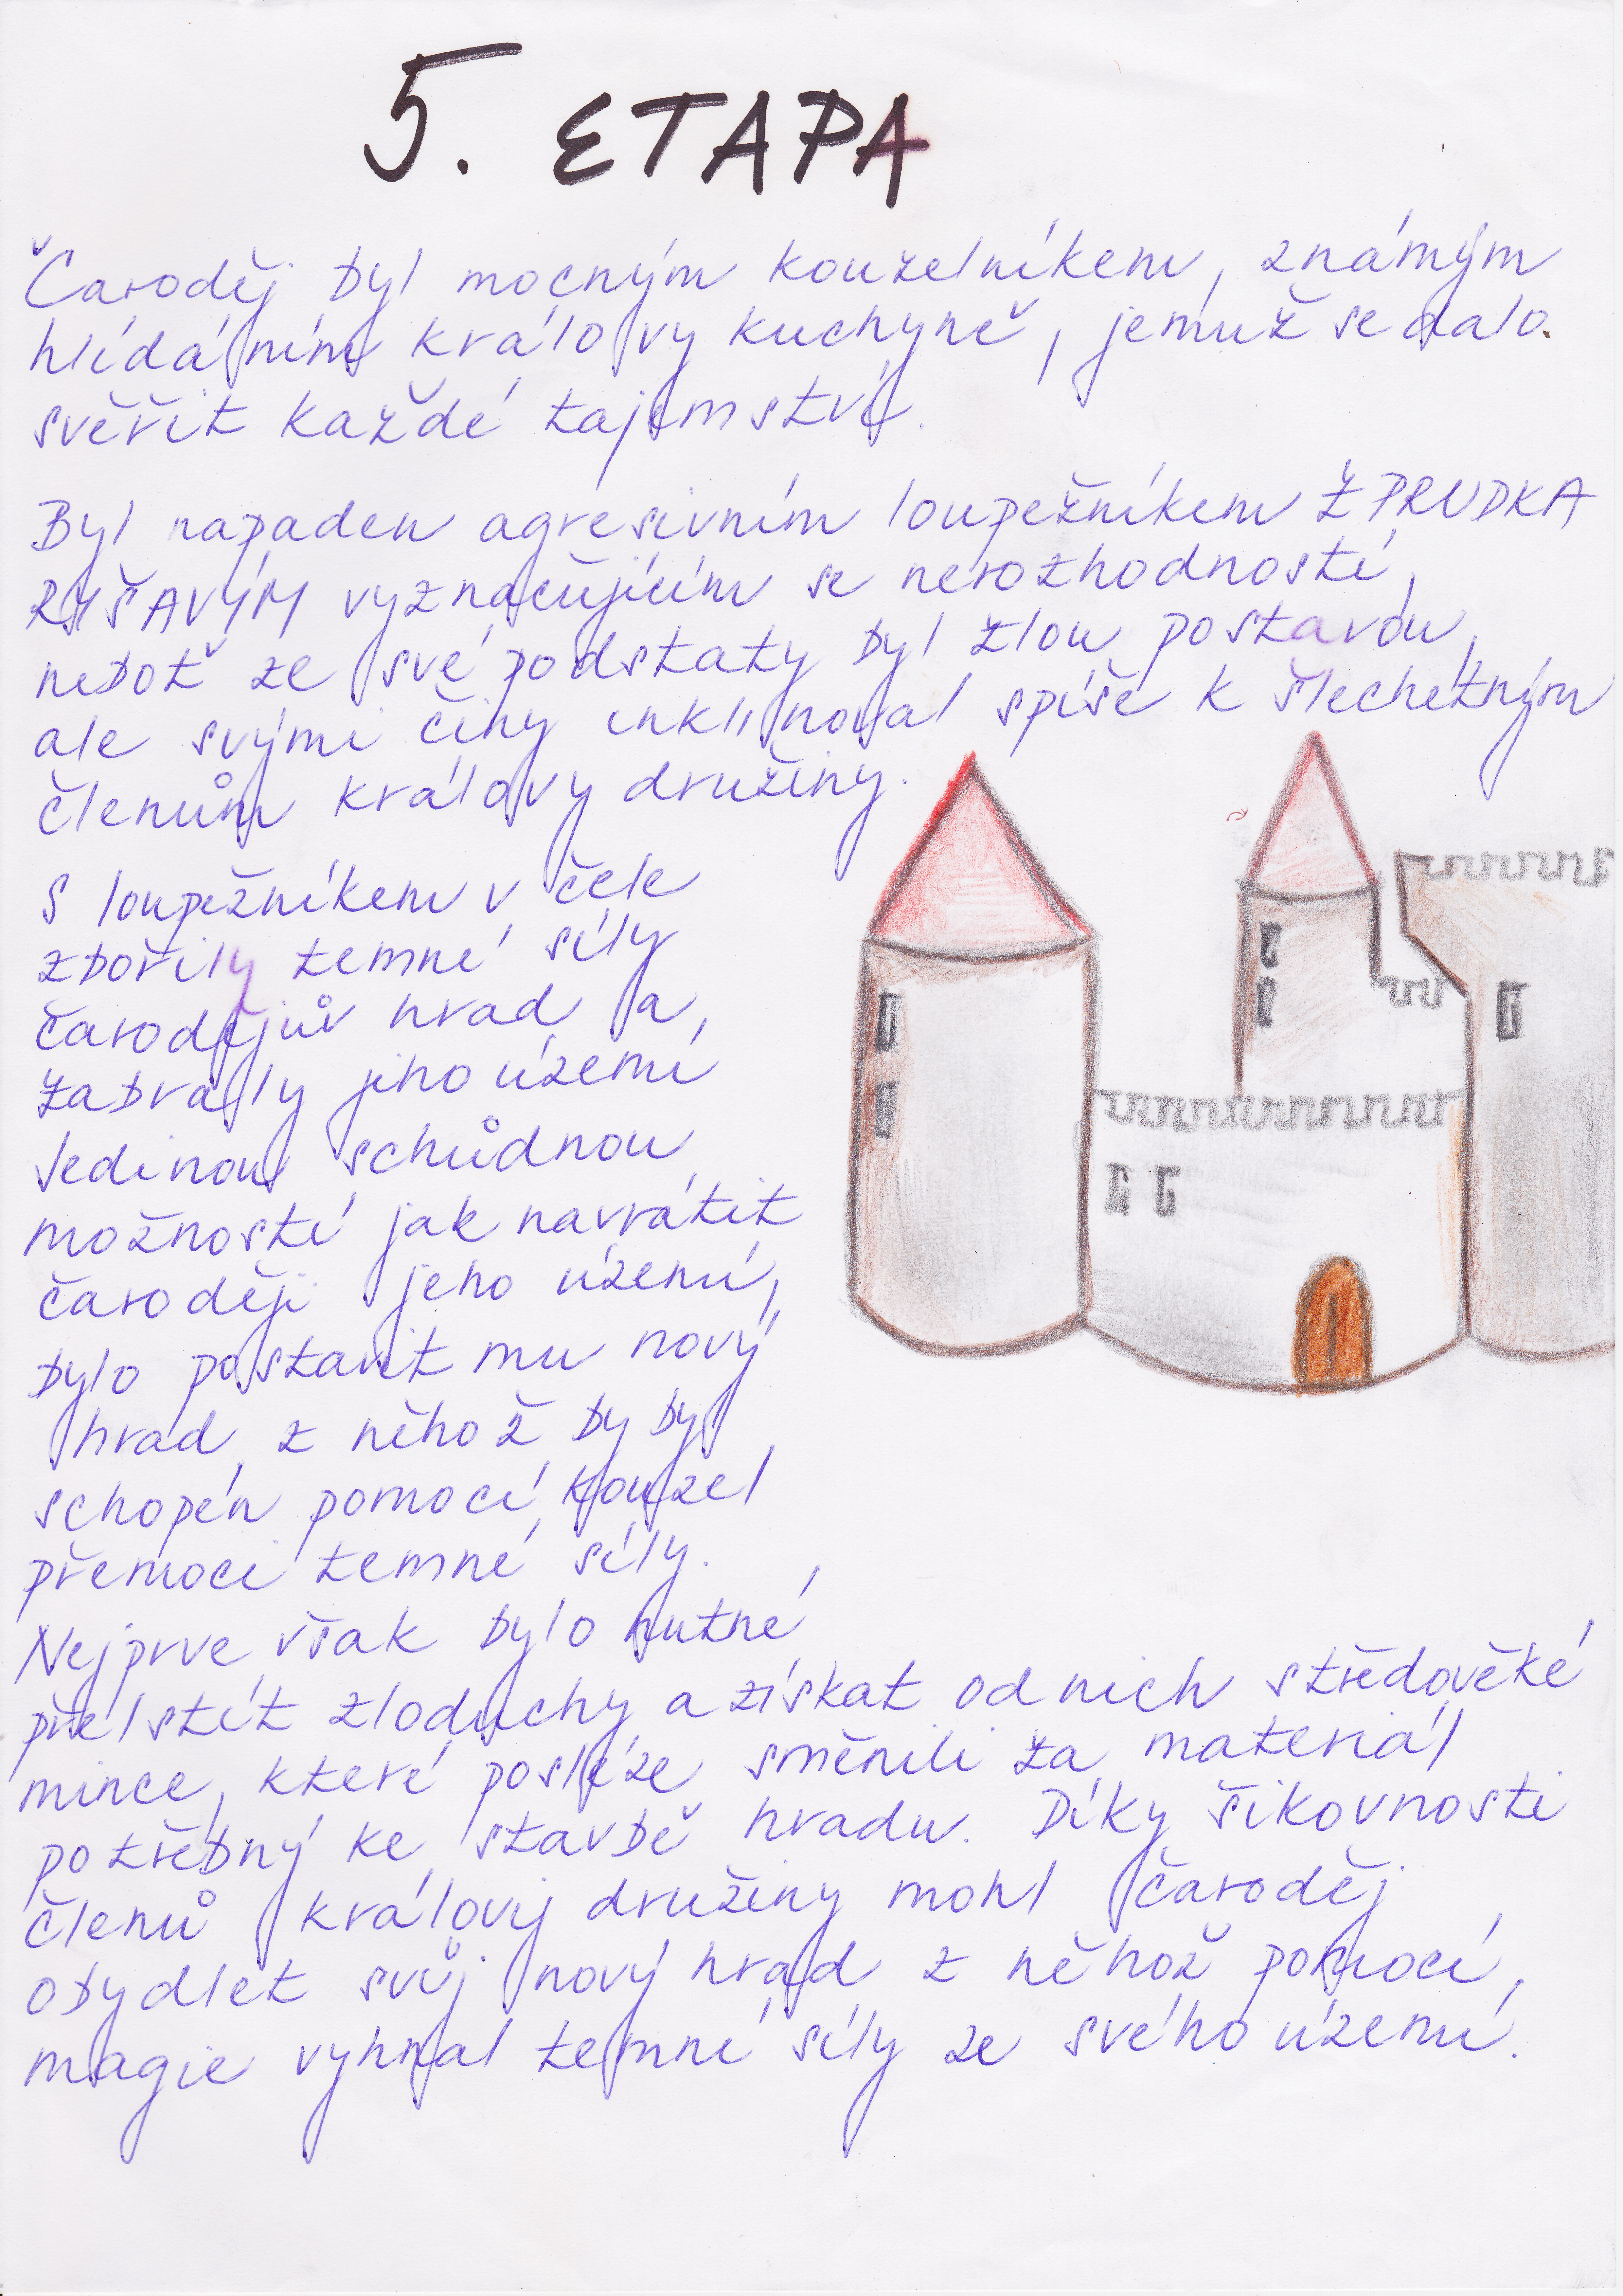 5. ETAPA
Čaroděj byl mocným kouzelníkem, známým
hlídáním královy kuchyně, jemuž se dalo.
svěřit každé tajemství.
Byl napaden agresivním loupežníkem ŽPRUDKA
RYŠAVÝM vyznačujícím se nerozhodností,
neboť ze své podstaty byl zlou postavou,
ale svými činy inklinoval spíše k šlechetným
členům královy družiny.
S loupežníkem v čele
zbořily temné síly
čarodějův hrad a
zabraly jeho území
Jedinou schůdnou
možností jak navrátit
čaroději jeho území,
bylo postavit mu nový
hrad z něhož by byl
schopen pomocí kouzel
přemoci temné síly.
Nejprve však bylo nutné
přelstít zloduchy a získat od nich středověké
mince, které posléze směnili za materiál
potřebný ke stavbě hradu. Díky šikovnosti
členů královy družiny mohl čaroděj
obydlet svůj nový hrad z něhož pomocí
magie vyhnal temné síly ze svého území.